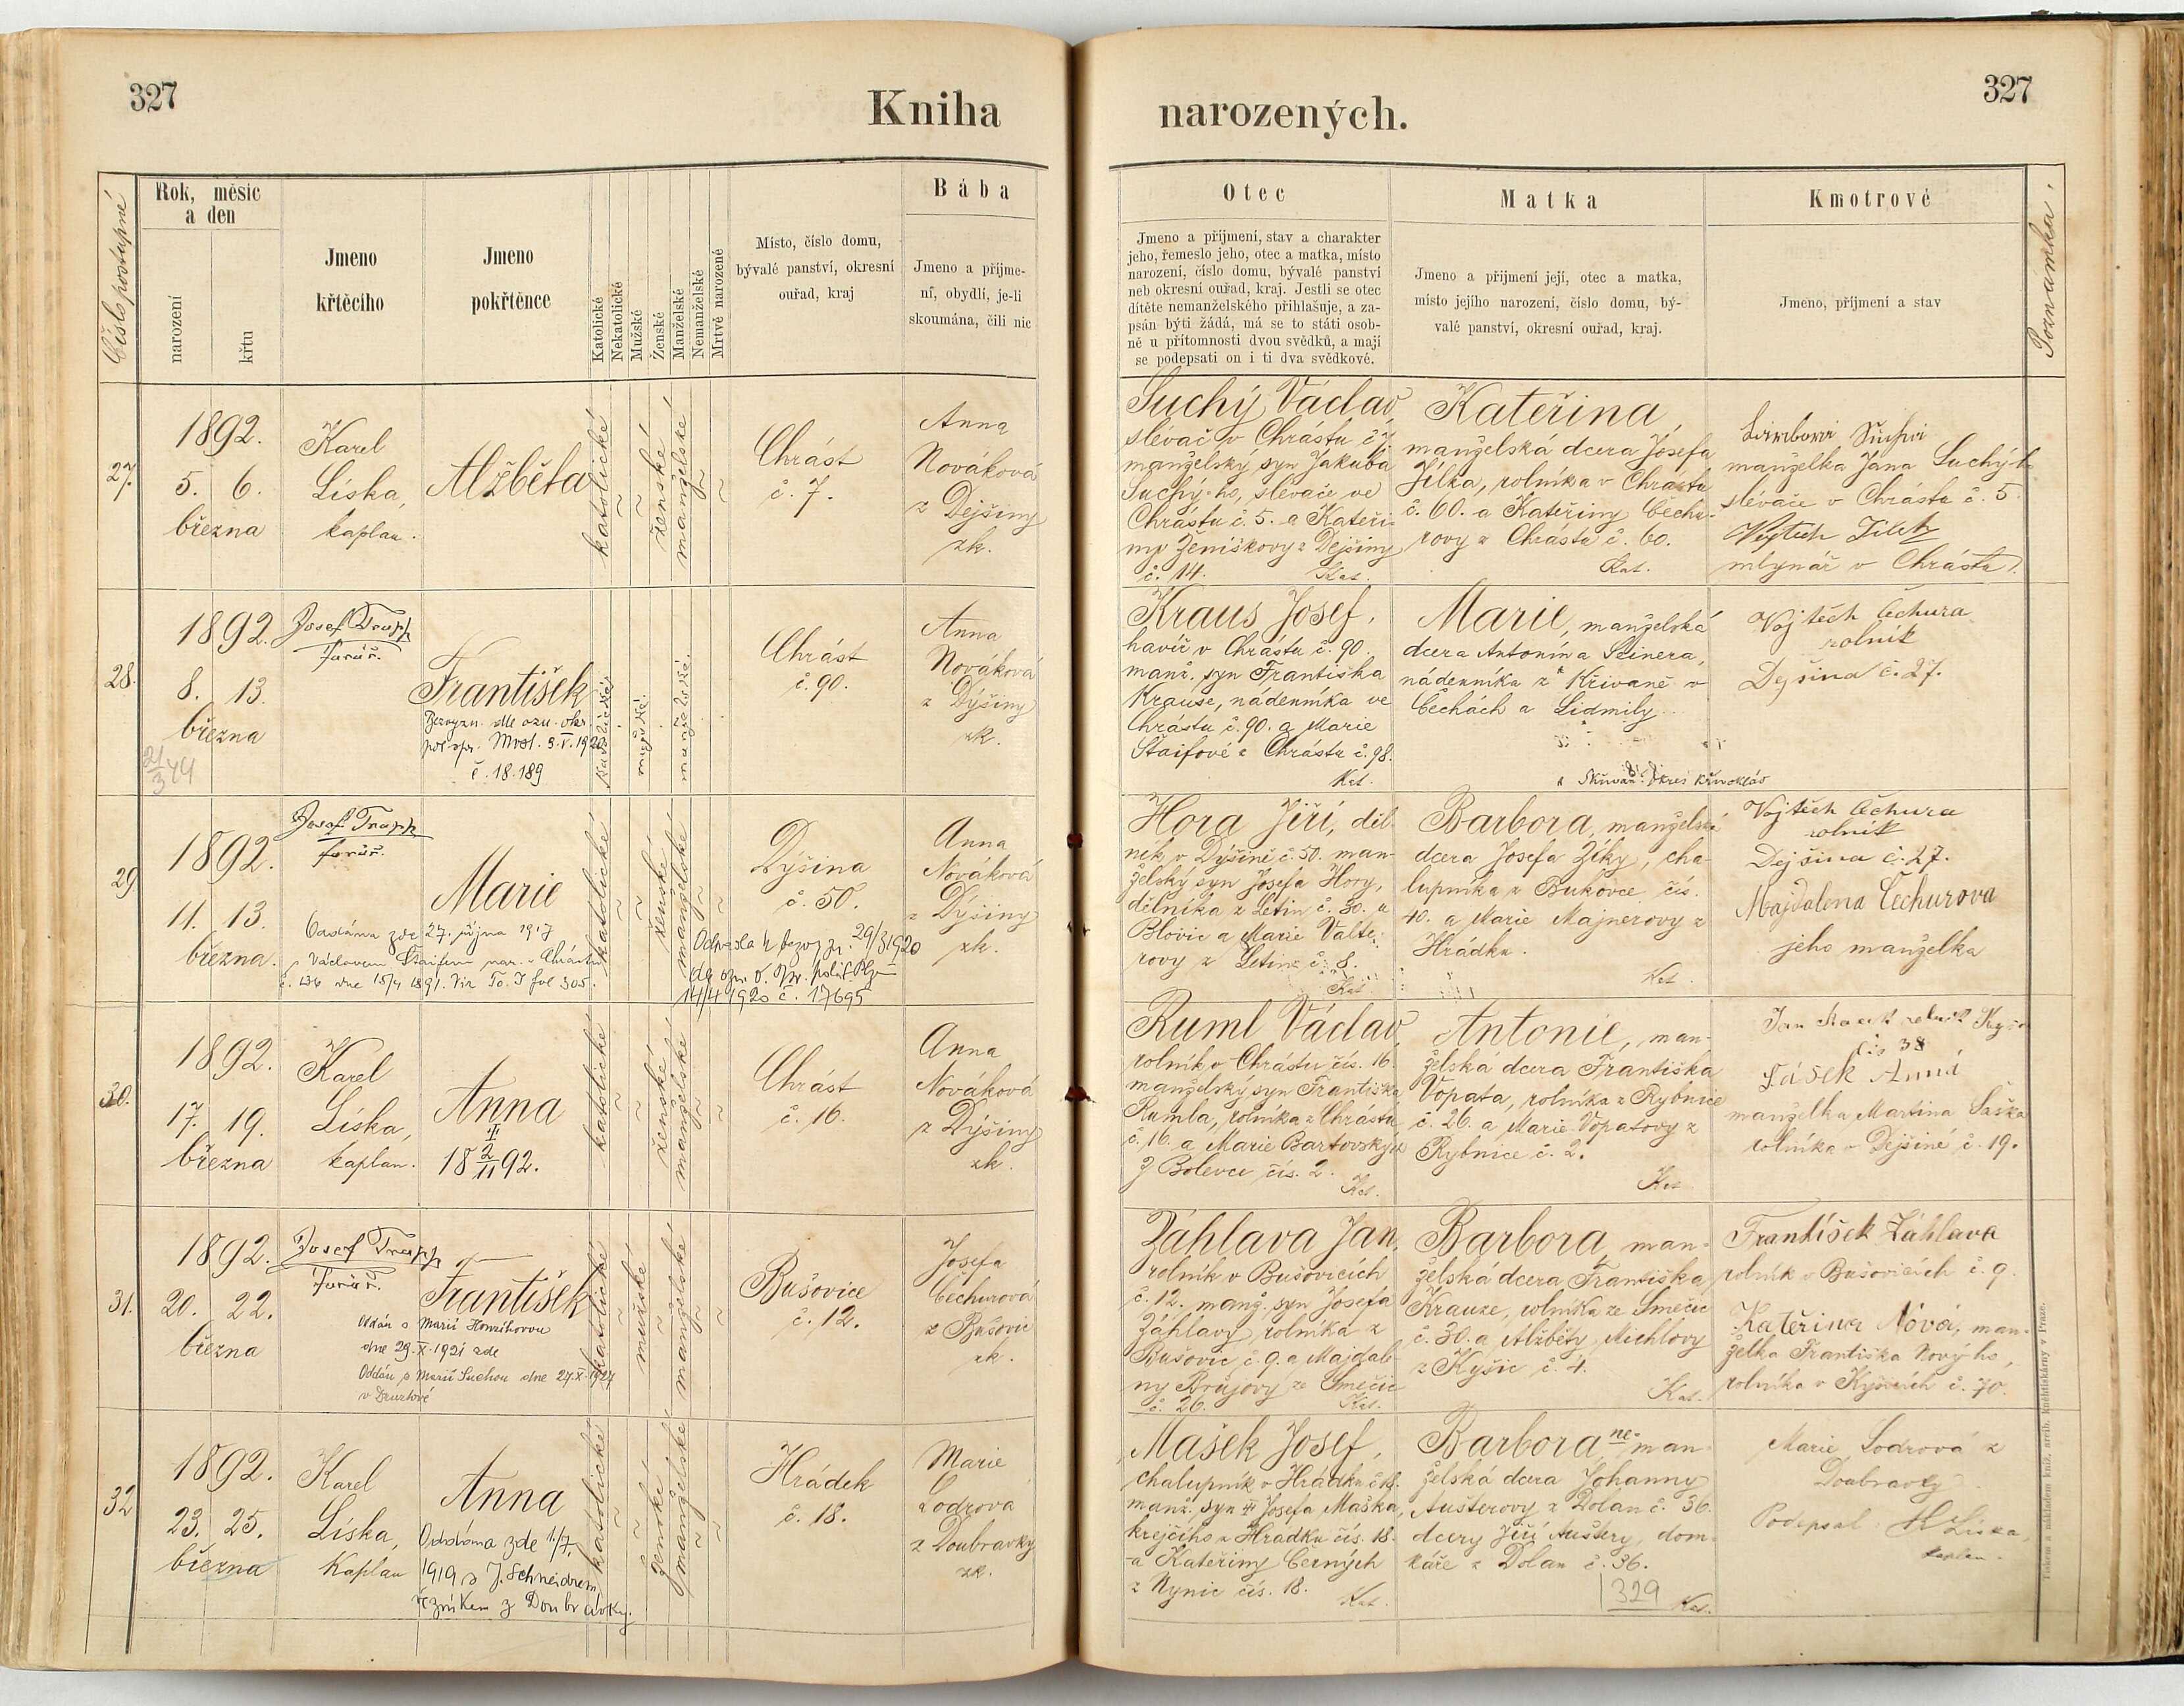 327
Kniha
narozených.
327
Číslo postupné
Rok, měsíc
a den
narození
křtu
Jmeno
křtěcího
Jmeno
pokřtěnce
Katolické
Nekatolické
Mužské
Ženské
Manželské
Nemanželské
Mrtvě narozené
Místo, číslo domu,
bývalé panství, okresní
ouřad, kraj
Bába
Jmeno a příjme-
ní, obydlí, je-li
skoumána, čili nic
Otec
Jmeno a příjmení, stav a charakter
jeho, řemeslo jeho, otec a matka, místo
narození, číslo domu, bývalé panství
neb okresní ouřad, kraj. Jestli se otec
dítěte nemanželského přihlašuje, a za-
psán býti žádá, má se to státi osob-
ně u přítomnosti dvou svědků, a mají
se podepsati on i ti dva svědkové.
Matka
Jmeno a přijmení její, otec a matka,
místo jejího narození, číslo domu, bý-
valé panství, okresní ouřad, kraj.
Kmotrové
Jmeno, příjmení a stav
Poznámka.
27.
1892.
5. 6.
března
Karel
Líska,
kaplan.
Alžběta
katolické
ženské
manželské
Chrást
č. 7.
Anna
Nováková
z Dejšiny
zk.
Suchý Václav
slévač v Chrástu č. 7.
manželský syn Jakuba
Suchý-ho, slévače ve
Chrástu č. 5. a Kateři-
ny Ženíškovy z Dejšiny
č. 14. Kat.
Kateřina,
manželská dcera Josefa
Jílka, rolníka v Chrástu
č. 60. a Kateřiny Čechu-
rovy z Chrástu č. 60.
Kat.
manželka Jana Suchý-ho
slévače v Chrástu č. 5.
Vojtěch Jílek
mlynář v Chrástu.
28.
1892.
8. 13.
března
21/3 44
Josef Trapp
farář.
František
Bezvyzn. dle ozn. okr.
pol. spr. 5.V.1920
č. 18.189
katolické
mužské
manželské
Chrást
č. 90.
Anna
Nováková
z Dýšiny
zk.
Kraus Josef,
havíř v Chrástu č. 90.
manž. syn Františka
Krause, nádenníka ve
Chrástu č. 90. a Marie
Štaifové z Chrástu č. 98.
Kat.
Marie, manželská
dcera Antonína Seinera,
nádenníka z Křivaně v
Čechách a Lidmily
Vojtěch Čechura
rolník
Dejšina č. 27.
29
1892.
11. 13.
března.
Josef Trapp
farář.
Marie
Oddána zde 27. října 1917
s Václavem Štaifem nar. v Chrástu
č. 136 dne 15/4 1891. Viz To. I fol 305.
katolické
ženské
manželské
Dýšina
č. 50.
29/3 1920
14/4 1920 č. 17695
Anna
Nováková
z Dýšiny
zk.
Hora Jiří, děl-
ník v Dýšině č. 50. man-
želský syn Josefa Hory,
dělníka z Letin č. 30. u
Blovic a Marie Valte-
rovy z Letin č. 8.
Kat.
Barbora, manželská
dcera Josefa Zíky, cha-
lupníka z Bukovce čís.
40. a Marie Majnerovy z
Hrádku.
Kat.
Vojtěch Čechura
rolník
Dejšina č. 27.
Majdalena Čechurova
jeho manželka
30.
1892.
17. 19.
března
Karel
Líska,
kaplan.
Anna
18 2/11 92.
katolické
ženské
manželské
Chrást
č. 16.
Anna
Nováková
z Dýšiny
zk.
Ruml Václav
rolník v Chrástu čís. 16.
manželský syn Františka
Rumla, rolníka z Chrástu
č. 16. a Marie Bartovských
z Bolevce čís. 2.
Kat.
Antonie, man-
želská dcera Františka
Vopata, rolníka z Rybnice
č. 26. a Marie Vopatovy z
Rybnice č. 2.
Kat.
čís 38
Šašek Anna
manželka Martina Šaška
rolníka v Dejšině č. 19.
31.
1892.
20. 22.
března
Josef Trapp
farář.
František
Oddán s Marií
dne 29.X.1921 zde
Oddán s Marií Suchou dne 27.X.1927
v Druztové
katolické
mužské
manželské
Bušovice
č. 12.
Josefa
Čechurová
z Bušovic
zk.
Záhlava Jan,
rolník v Bušovicích
č. 12. manž. syn Josefa
Záhlavy, rolníka z
Bušovic č. 9. a Majdale-
ny Brůjovy ze Smečic
č. 26. Kat.
Barbora, man-
želská dcera Františka
Krauze, rolníka ze Smečic
č. 30. a Alžběty Michlovy
z Kyšic č. 4.
Kat.
František Záhlava
rolník v Bušovicích č. 9.
Kateřina Nová, man-
želka Františka Nový-ho,
rolníka v Kyšicích č. 70.
32
1892.
23. 25.
března
Karel
Líska,
Kaplan
Anna
Oddána zde 1/7.
1919 s J. Schneidrem,
řezníkem z Doubravky.
katolické
ženské
manželské
Hrádek
č. 18.
Marie
Lodrová
z Doubravky
zk.
Mašek Josef,
chalupník v Hrádku č. 18.
manž. syn † Josefa Maška,
krejčího z Hrádku čís. 18.
a Kateřiny Černých
z Nynic čís. 18. Kat.
Barbora ne-man-
želská dcera Johanny
Austerovy z Dolan č. 36.
dcery Jiří Auštery, dom-
káře z Dolan č. 36.
329 Kat.
Marie Lodrová z
Doubravky.
Podepsal K Líska,
kaplan.